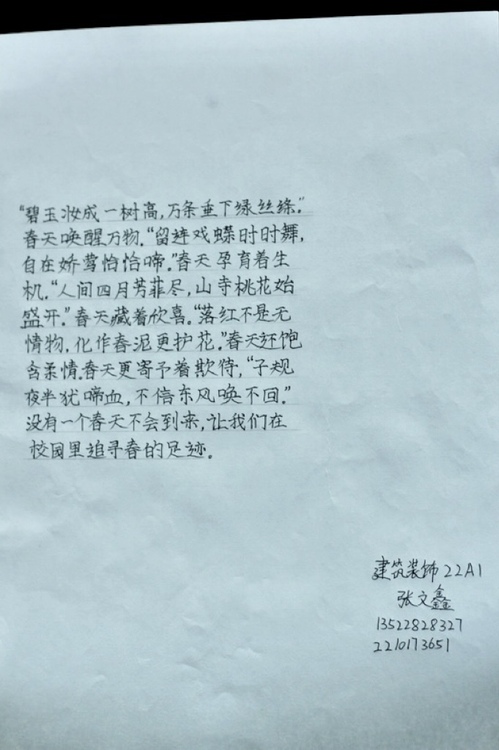 “碧玉妆成一树高,万条垂下绿丝绦.”
春天唤醒万物.“留连戏蝶时时舞,
自在娇莺恰恰啼.”春天孕育着生
机.“人间四月芳菲尽,山寺桃花始
盛开.”春天藏着欣喜.“落红不是无
情物,化作春泥更护花.”春天还饱
含柔情.春天更寄予着欺待,“子规
夜半犹啼血,不信东风唤不回.”
没有一个春天不会到来,让我们在
校园里追寻春的足迹。
建筑装饰22A1
张文鑫
13522828327
2210173651